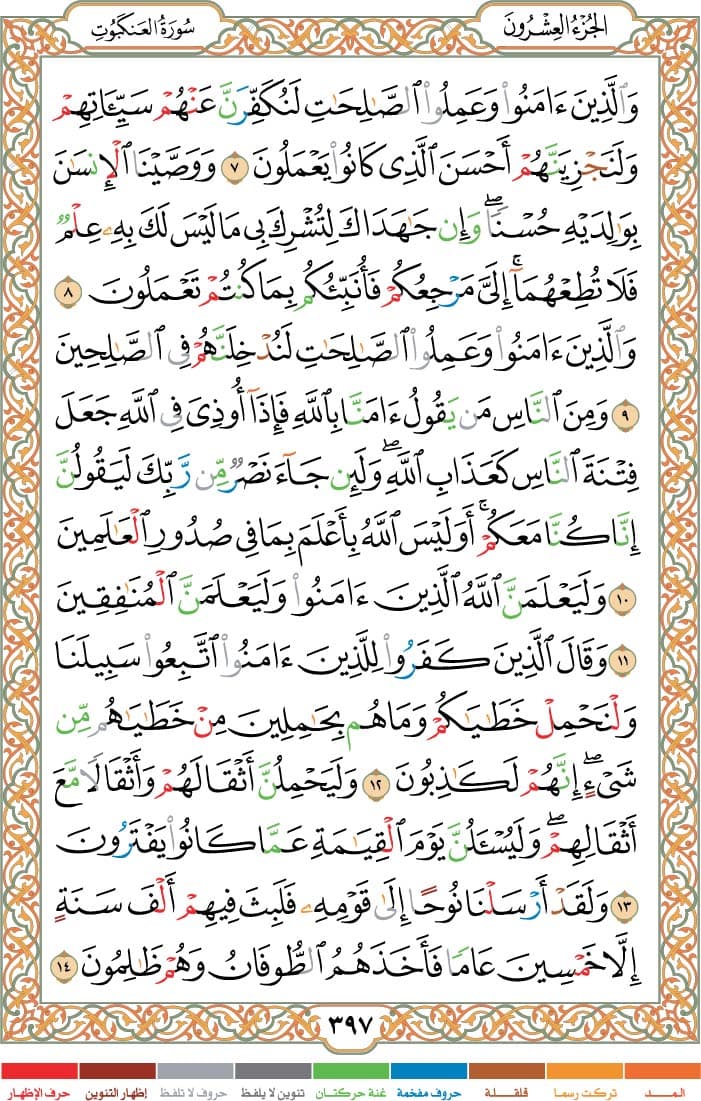 الجُزْءُ العِشْرُونَ
سُورَةُ العَنكَبُوتِ
وَٱلَّذِينَ ءَامَنُوا۟ وَعَمِلُوا۟ ٱلصَّـٰلِحَـٰتِ لَنُكَفِّرَنَّ عَنْهُمْ سَيِّـَٔاتِهِمْ
وَلَنَجْزِيَنَّهُمْ أَحْسَنَ ٱلَّذِى كَانُوا۟ يَعْمَلُونَ ٧ وَوَصَّيْنَا ٱلْإِنسَـٰنَ
بِوَٰلِدَيْهِ حُسْنًا ۖ وَإِن جَـٰهَدَاكَ لِتُشْرِكَ بِى مَا لَيْسَ لَكَ بِهِۦ عِلْمٌ
فَلَا تُطِعْهُمَآ ۚ إِلَىَّ مَرْجِعُكُمْ فَأُنَبِّئُكُم بِمَا كُنتُمْ تَعْمَلُونَ ٨
وَٱلَّذِينَ ءَامَنُوا۟ وَعَمِلُوا۟ ٱلصَّـٰلِحَـٰتِ لَنُدْخِلَنَّهُمْ فِى ٱلصَّـٰلِحِينَ
٩ وَمِنَ ٱلنَّاسِ مَن يَقُولُ ءَامَنَّا بِٱللَّهِ فَإِذَآ أُوذِىَ فِى ٱللَّهِ جَعَلَ
فِتْنَةَ ٱلنَّاسِ كَعَذَابِ ٱللَّهِ ۖ وَلَئِن جَآءَ نَصْرٌ مِّن رَّبِّكَ لَيَقُولُنَّ
إِنَّا كُنَّا مَعَكُمْ ۚ أَوَلَيْسَ ٱللَّهُ بِأَعْلَمَ بِمَا فِى صُدُورِ ٱلْعَـٰلَمِينَ
١٠ وَلَيَعْلَمَنَّ ٱللَّهُ ٱلَّذِينَ ءَامَنُوا۟ وَلَيَعْلَمَنَّ ٱلْمُنَـٰفِقِينَ
١١ وَقَالَ ٱلَّذِينَ كَفَرُوا۟ لِلَّذِينَ ءَامَنُوا۟ ٱتَّبِعُوا۟ سَبِيلَنَا
وَلْنَحْمِلْ خَطَـٰيَـٰكُمْ وَمَا هُم بِحَـٰمِلِينَ مِنْ خَطَـٰيَـٰهُم مِّن
شَىْءٍ ۖ إِنَّهُمْ لَكَـٰذِبُونَ ١٢ وَلَيَحْمِلُنَّ أَثْقَالَهُمْ وَأَثْقَالًا مَّعَ
أَثْقَالِهِمْ ۖ وَلَيُسْـَٔلُنَّ يَوْمَ ٱلْقِيَـٰمَةِ عَمَّا كَانُوا۟ يَفْتَرُونَ
١٣ وَلَقَدْ أَرْسَلْنَا نُوحًا إِلَىٰ قَوْمِهِۦ فَلَبِثَ فِيهِمْ أَلْفَ سَنَةٍ
إِلَّا خَمْسِينَ عَامًا فَأَخَذَهُمُ ٱلطُّوفَانُ وَهُمْ ظَـٰلِمُونَ ١٤
٣٩٧
المــــد تركت رسما قلقلة حروف مفخمة غنة حركتان تنوين لا يلفظ حروف لا تلفظ إظهار التنوين حرف الإظهار